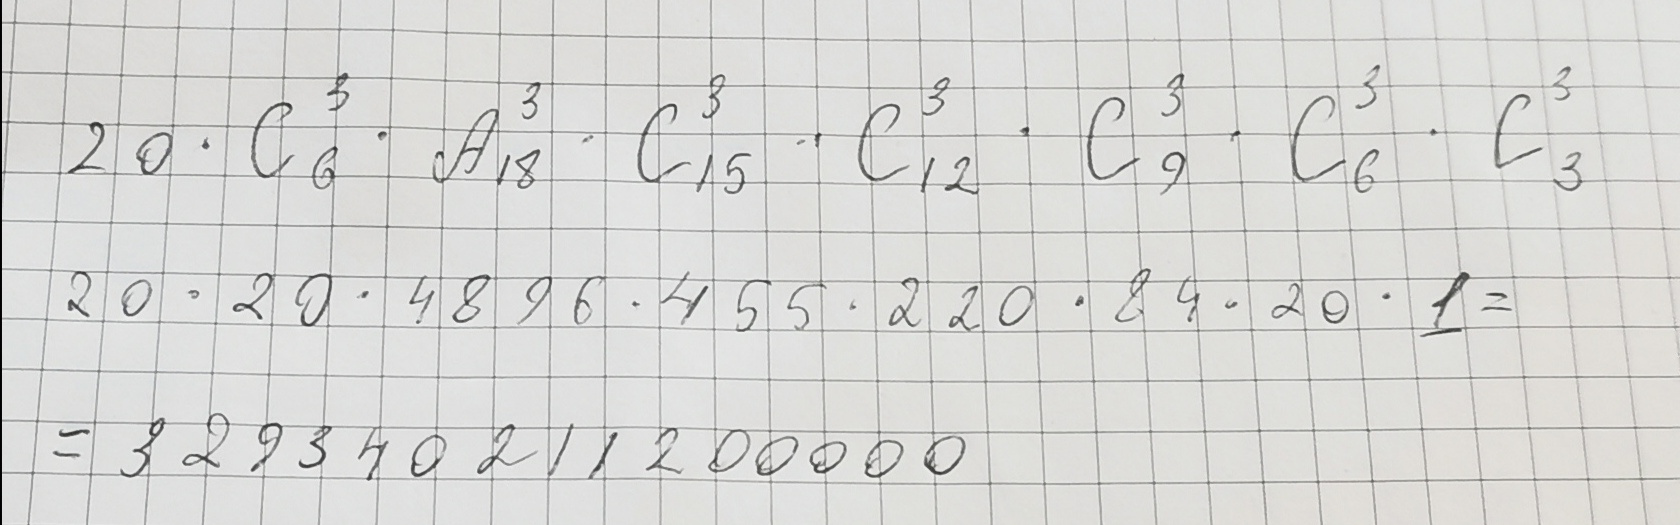 20 · C₆³ · A₁₈³ · C₁₅³ · C₁₂³ · C₉³ · C₆³ · C₃³
20 · 20 · 4896 · 455 · 220 · 84 · 20 · 1 =
= 329340211200000